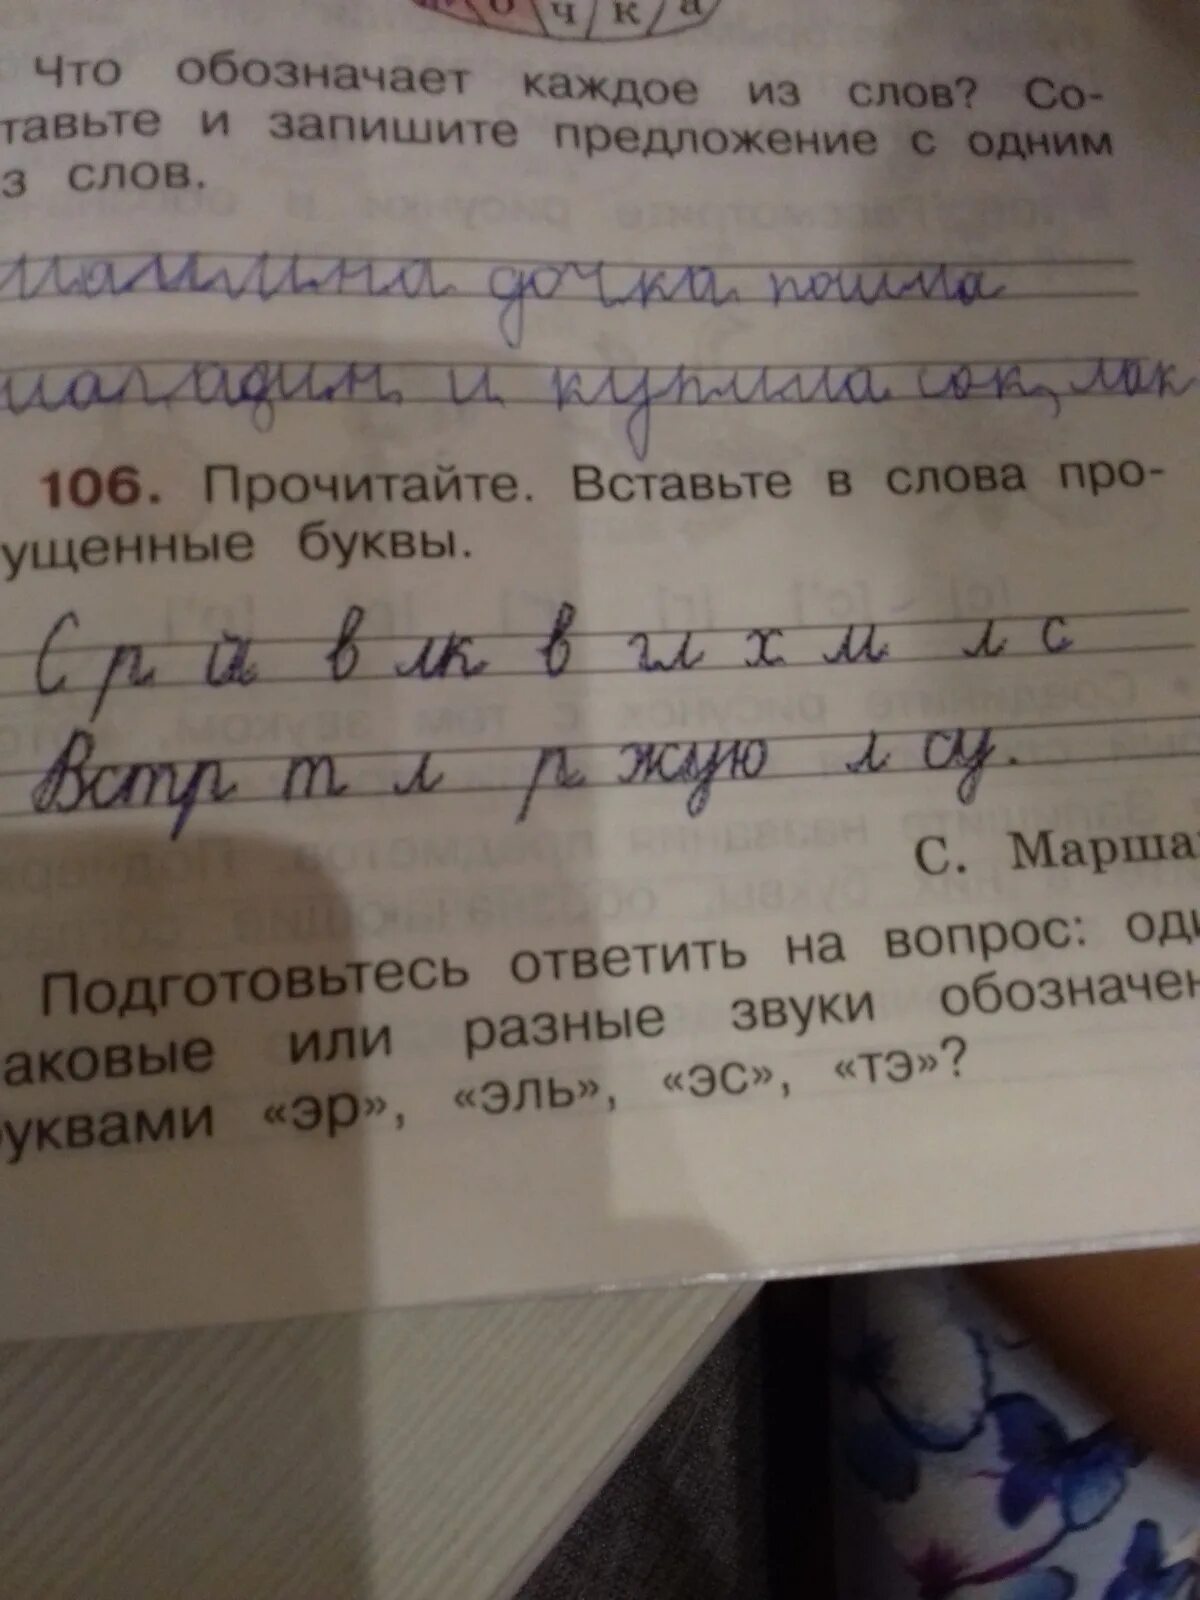 о ч к а
Что обозначает каждое из слов? Со-
тавьте и запишите предложение с одним
з слов.
дочка пошла
и купила сок, лак
106. Прочитайте. Вставьте в слова про-
ущенные буквы.
С р й в лк в гл х м л с
Встр т л р жую л су.
С. Марша
Подготовьтесь ответить на вопрос: оди
аковые или разные звуки обозначен
уквами «эр», «эль», «эс», «тэ»?